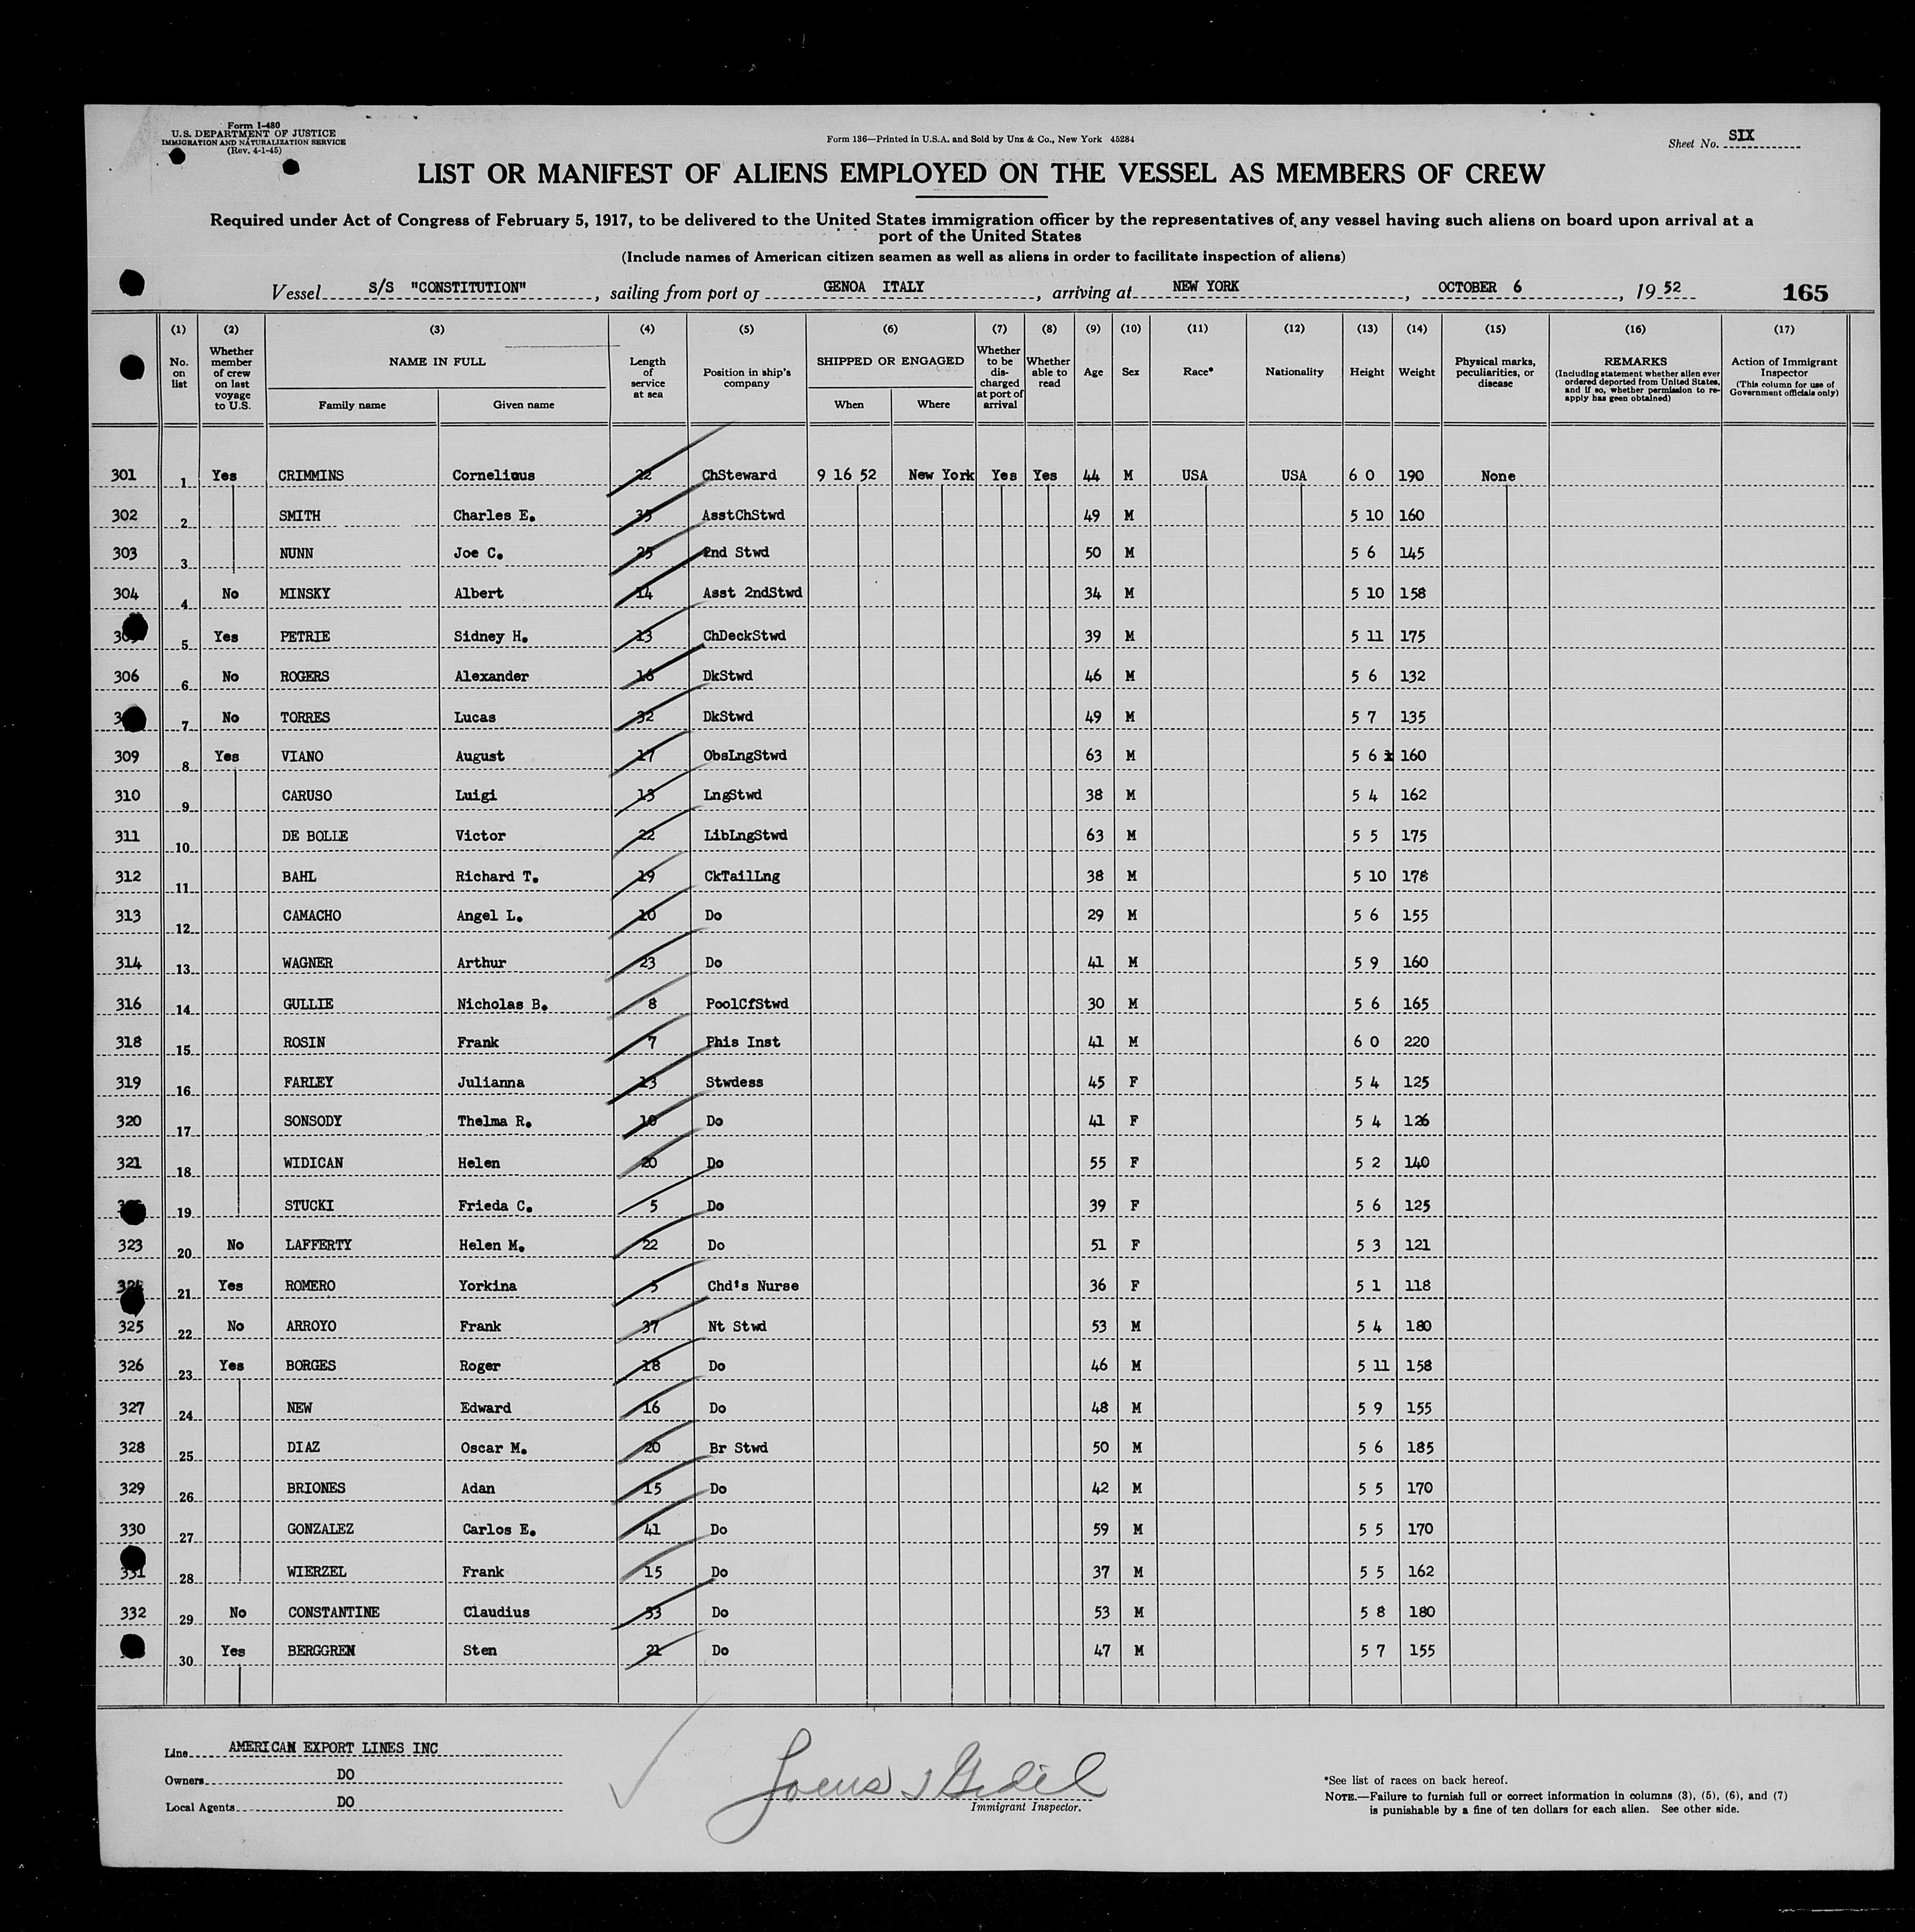 Form I-480
U. S. DEPARTMENT OF JUSTICE
IMMIGRATION AND NATURALIZATION SERVICE
(Rev. 4-1-45)
Form 136—Printed in U.S.A. and Sold by Unz & Co., New York 45284
Sheet No. SIX
LIST OR MANIFEST OF ALIENS EMPLOYED ON THE VESSEL AS MEMBERS OF CREW
Required under Act of Congress of February 5, 1917, to be delivered to the United States immigration officer by the representatives of any vessel having such aliens on board upon arrival at a
port of the United States
(Include names of American citizen seamen as well as aliens in order to facilitate inspection of aliens)
Vessel S/S "CONSTITUTION", sailing from port of GENOA ITALY, arriving at NEW YORK, OCTOBER 6, 19 52 165
(1) (2) (3) (4) (5) (6) (7) (8) (9) (10) (11) (12) (13) (14) (15) (16) (17)
No. on list
Whether member of crew on last voyage to U.S.
NAME IN FULL
Family name Given name
Length of service at sea
Position in ship's company
SHIPPED OR ENGAGED
When Where
Whether to be discharged at port of arrival
Whether able to read
Age
Sex
Race*
Nationality
Height
Weight
Physical marks, peculiarities, or disease
REMARKS
(Including statement whether alien ever ordered deported from United States, and if so, whether permission to re-apply has geen obtained)
Action of Immigrant Inspector
(This column for use of Government officials only)
301 1 Yes CRIMMINS Cornelius 22 ChSteward 9 16 52 New York Yes Yes 44 M USA USA 6 0 190 None
302 2 SMITH Charles E. 35 AsstChStwd 49 M 5 10 160
303 3 NUNN Joe C. 25 2nd Stwd 50 M 5 6 145
304 4 No MINSKY Albert 14 Asst 2ndStwd 34 M 5 10 158
5 Yes PETRIE Sidney H. 13 ChDeckStwd 39 M 5 11 175
306 6 No ROGERS Alexander 16 DkStwd 46 M 5 6 132
7 No TORRES Lucas 32 DkStwd 49 M 5 7 135
309 8 Yes VIANO August 17 ObsLngStwd 63 M 5 6 160
310 9 CARUSO Luigi 13 LngStwd 38 M 5 4 162
311 10 DE BOLLE Victor 22 LibLngStwd 63 M 5 5 175
312 11 BAHL Richard T. 19 CkTailLng 38 M 5 10 178
313 12 CAMACHO Angel L. 10 Do 29 M 5 6 155
314 13 WAGNER Arthur 23 Do 41 M 5 9 160
316 14 GULLIE Nicholas B. 8 PoolCfStwd 30 M 5 6 165
318 15 ROSIN Frank 7 Phis Inst 41 M 6 0 220
319 16 FARLEY Julianna 13 Stwdess 45 F 5 4 125
320 17 SONSODY Thelma R. 10 Do 41 F 5 4 126
321 18 WIDICAN Helen 20 Do 55 F 5 2 140
19 STUCKI Frieda C. 5 Do 39 F 5 6 125
323 20 No LAFFERTY Helen M. 22 Do 51 F 5 3 121
324 21 Yes ROMERO Yorkina 5 Chd's Nurse 36 F 5 1 118
325 22 No ARROYO Frank 37 Nt Stwd 53 M 5 4 180
326 23 Yes BORGES Roger 18 Do 46 M 5 11 158
327 24 NEW Edward 16 Do 48 M 5 9 155
328 25 DIAZ Oscar M. 20 Br Stwd 50 M 5 6 185
329 26 BRIONES Adan 15 Do 42 M 5 5 170
330 27 GONZALEZ Carlos E. 41 Do 59 M 5 5 170
331 28 WIERZEL Frank 15 Do 37 M 5 5 162
332 29 No CONSTANTINE Claudius 33 Do 53 M 5 8 180
30 Yes BERGGREN Sten 21 Do 47 M 5 7 155
Line AMERICAN EXPORT LINES INC
Owners DO
Local Agents DO
Immigrant Inspector.
*See list of races on back hereof.
NOTE.—Failure to furnish full or correct information in columns (3), (5), (6), and (7)
is punishable by a fine of ten dollars for each alien. See other side.